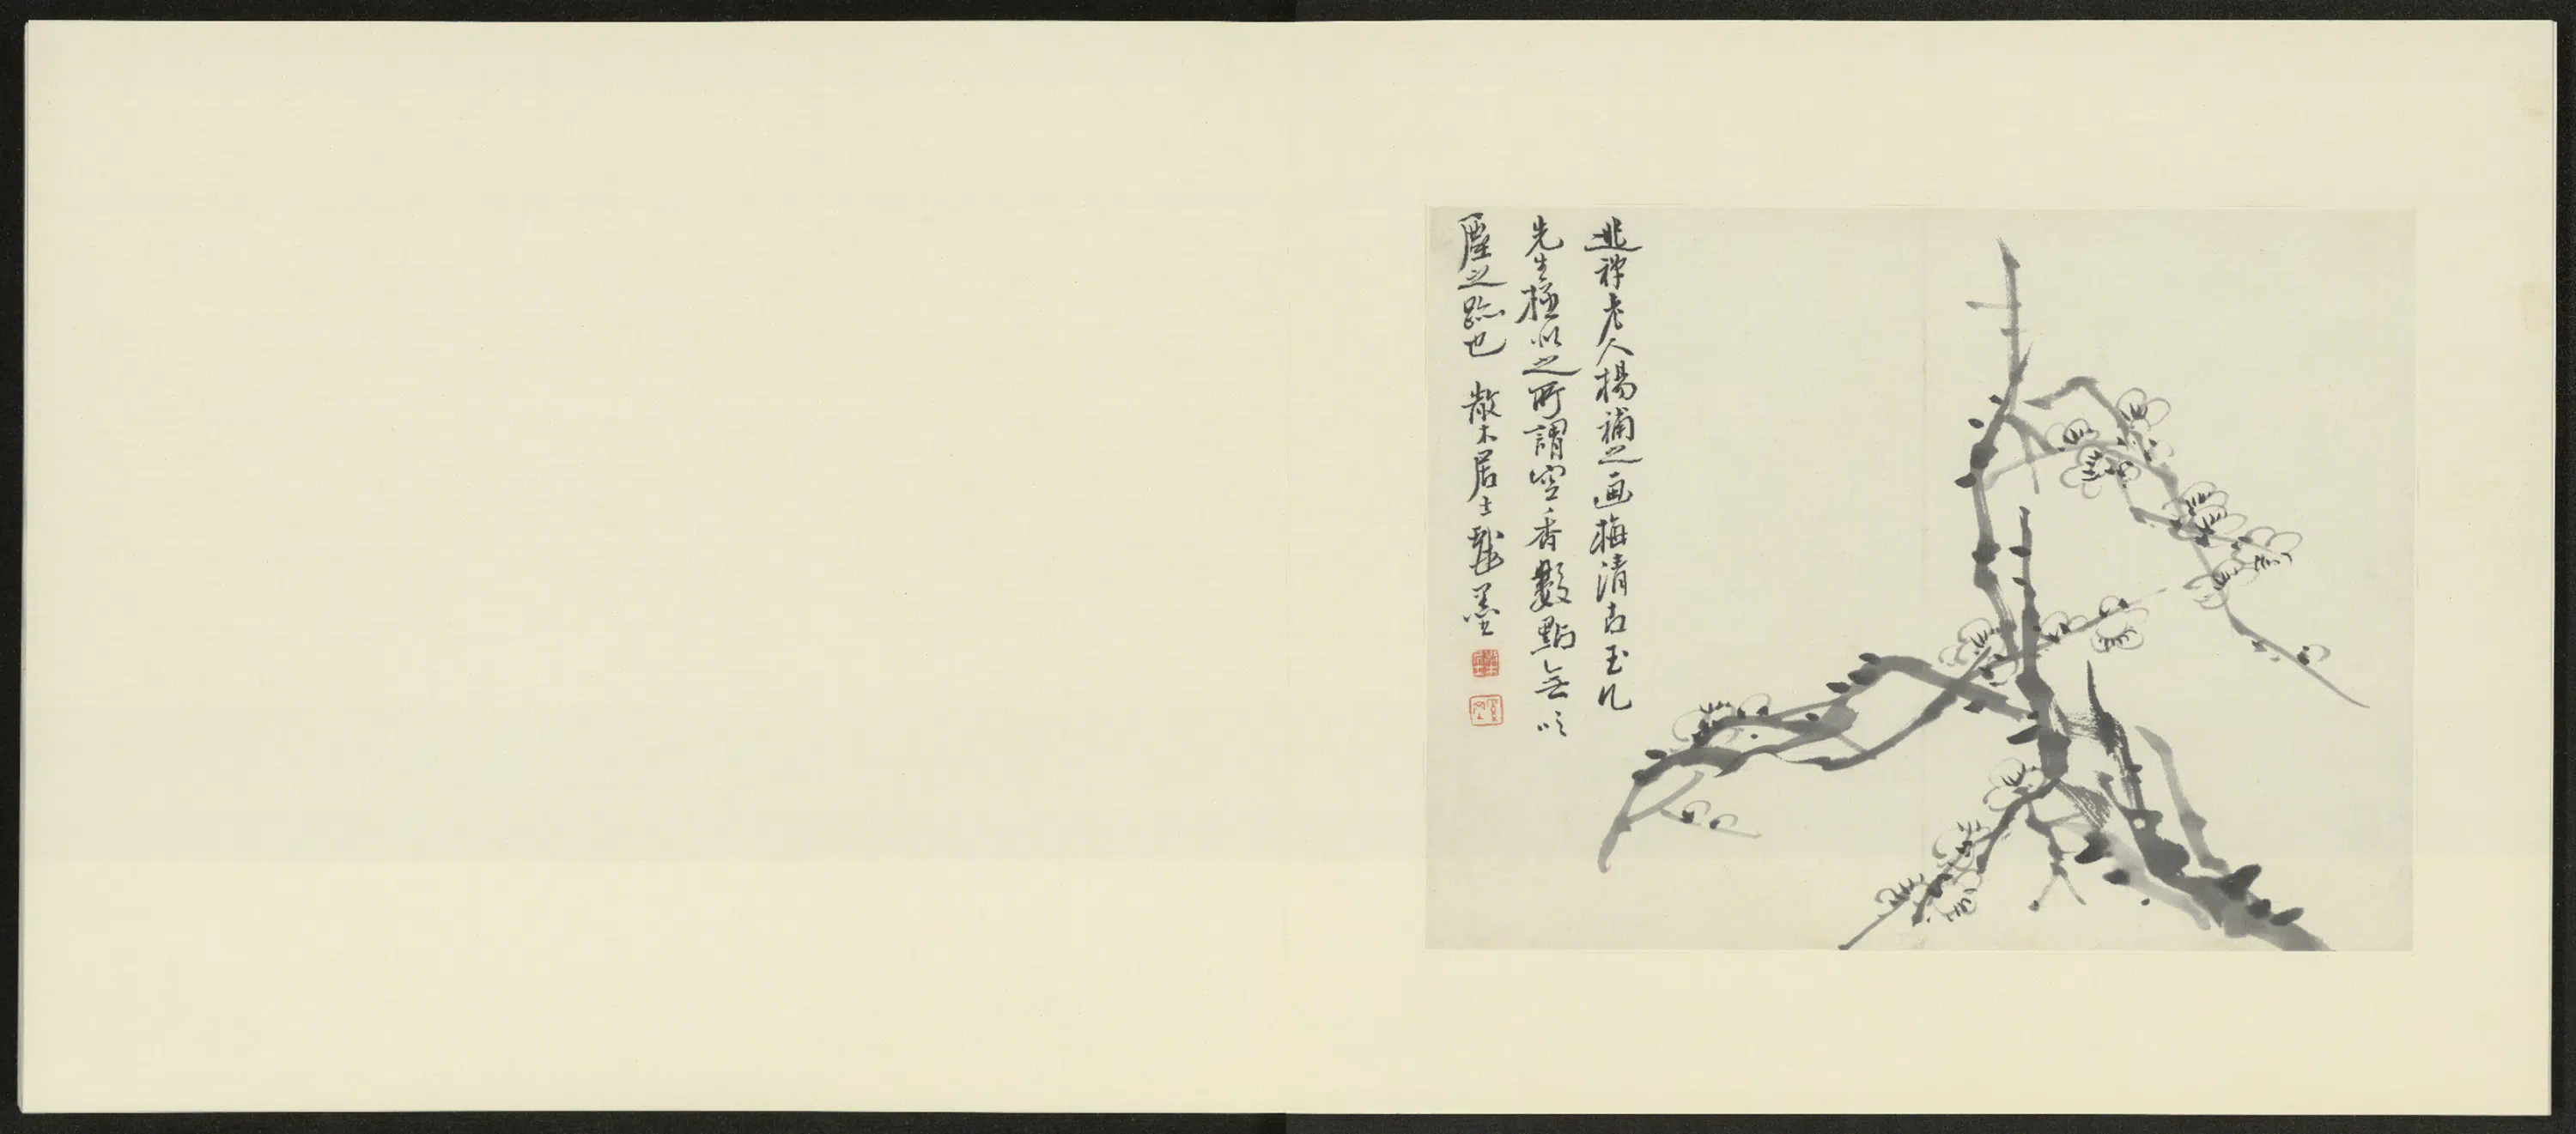 逃禪老人楊補之画梅清古玉几
先生極似之所謂空香數點無吹
塵之跡也 散木居士戲墨